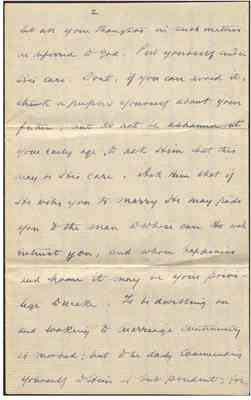 2
let all your thoughts in such matters
be referred to God. Put yourself under
His care. Don't, if you can avoid it,
yourself about your
future, but do not be ashamed at
your early age, to ask Him that this
may be His care. Ask Him that if
He wills you to marry He may guide
you to the man to whom can He will
entrust you, and whose happiness
and home it may be your privi-
lege to make. To be dwelling on
and looking to marriage continually
is morbid; but to be daily commending
yourself to Him is but prudent; for